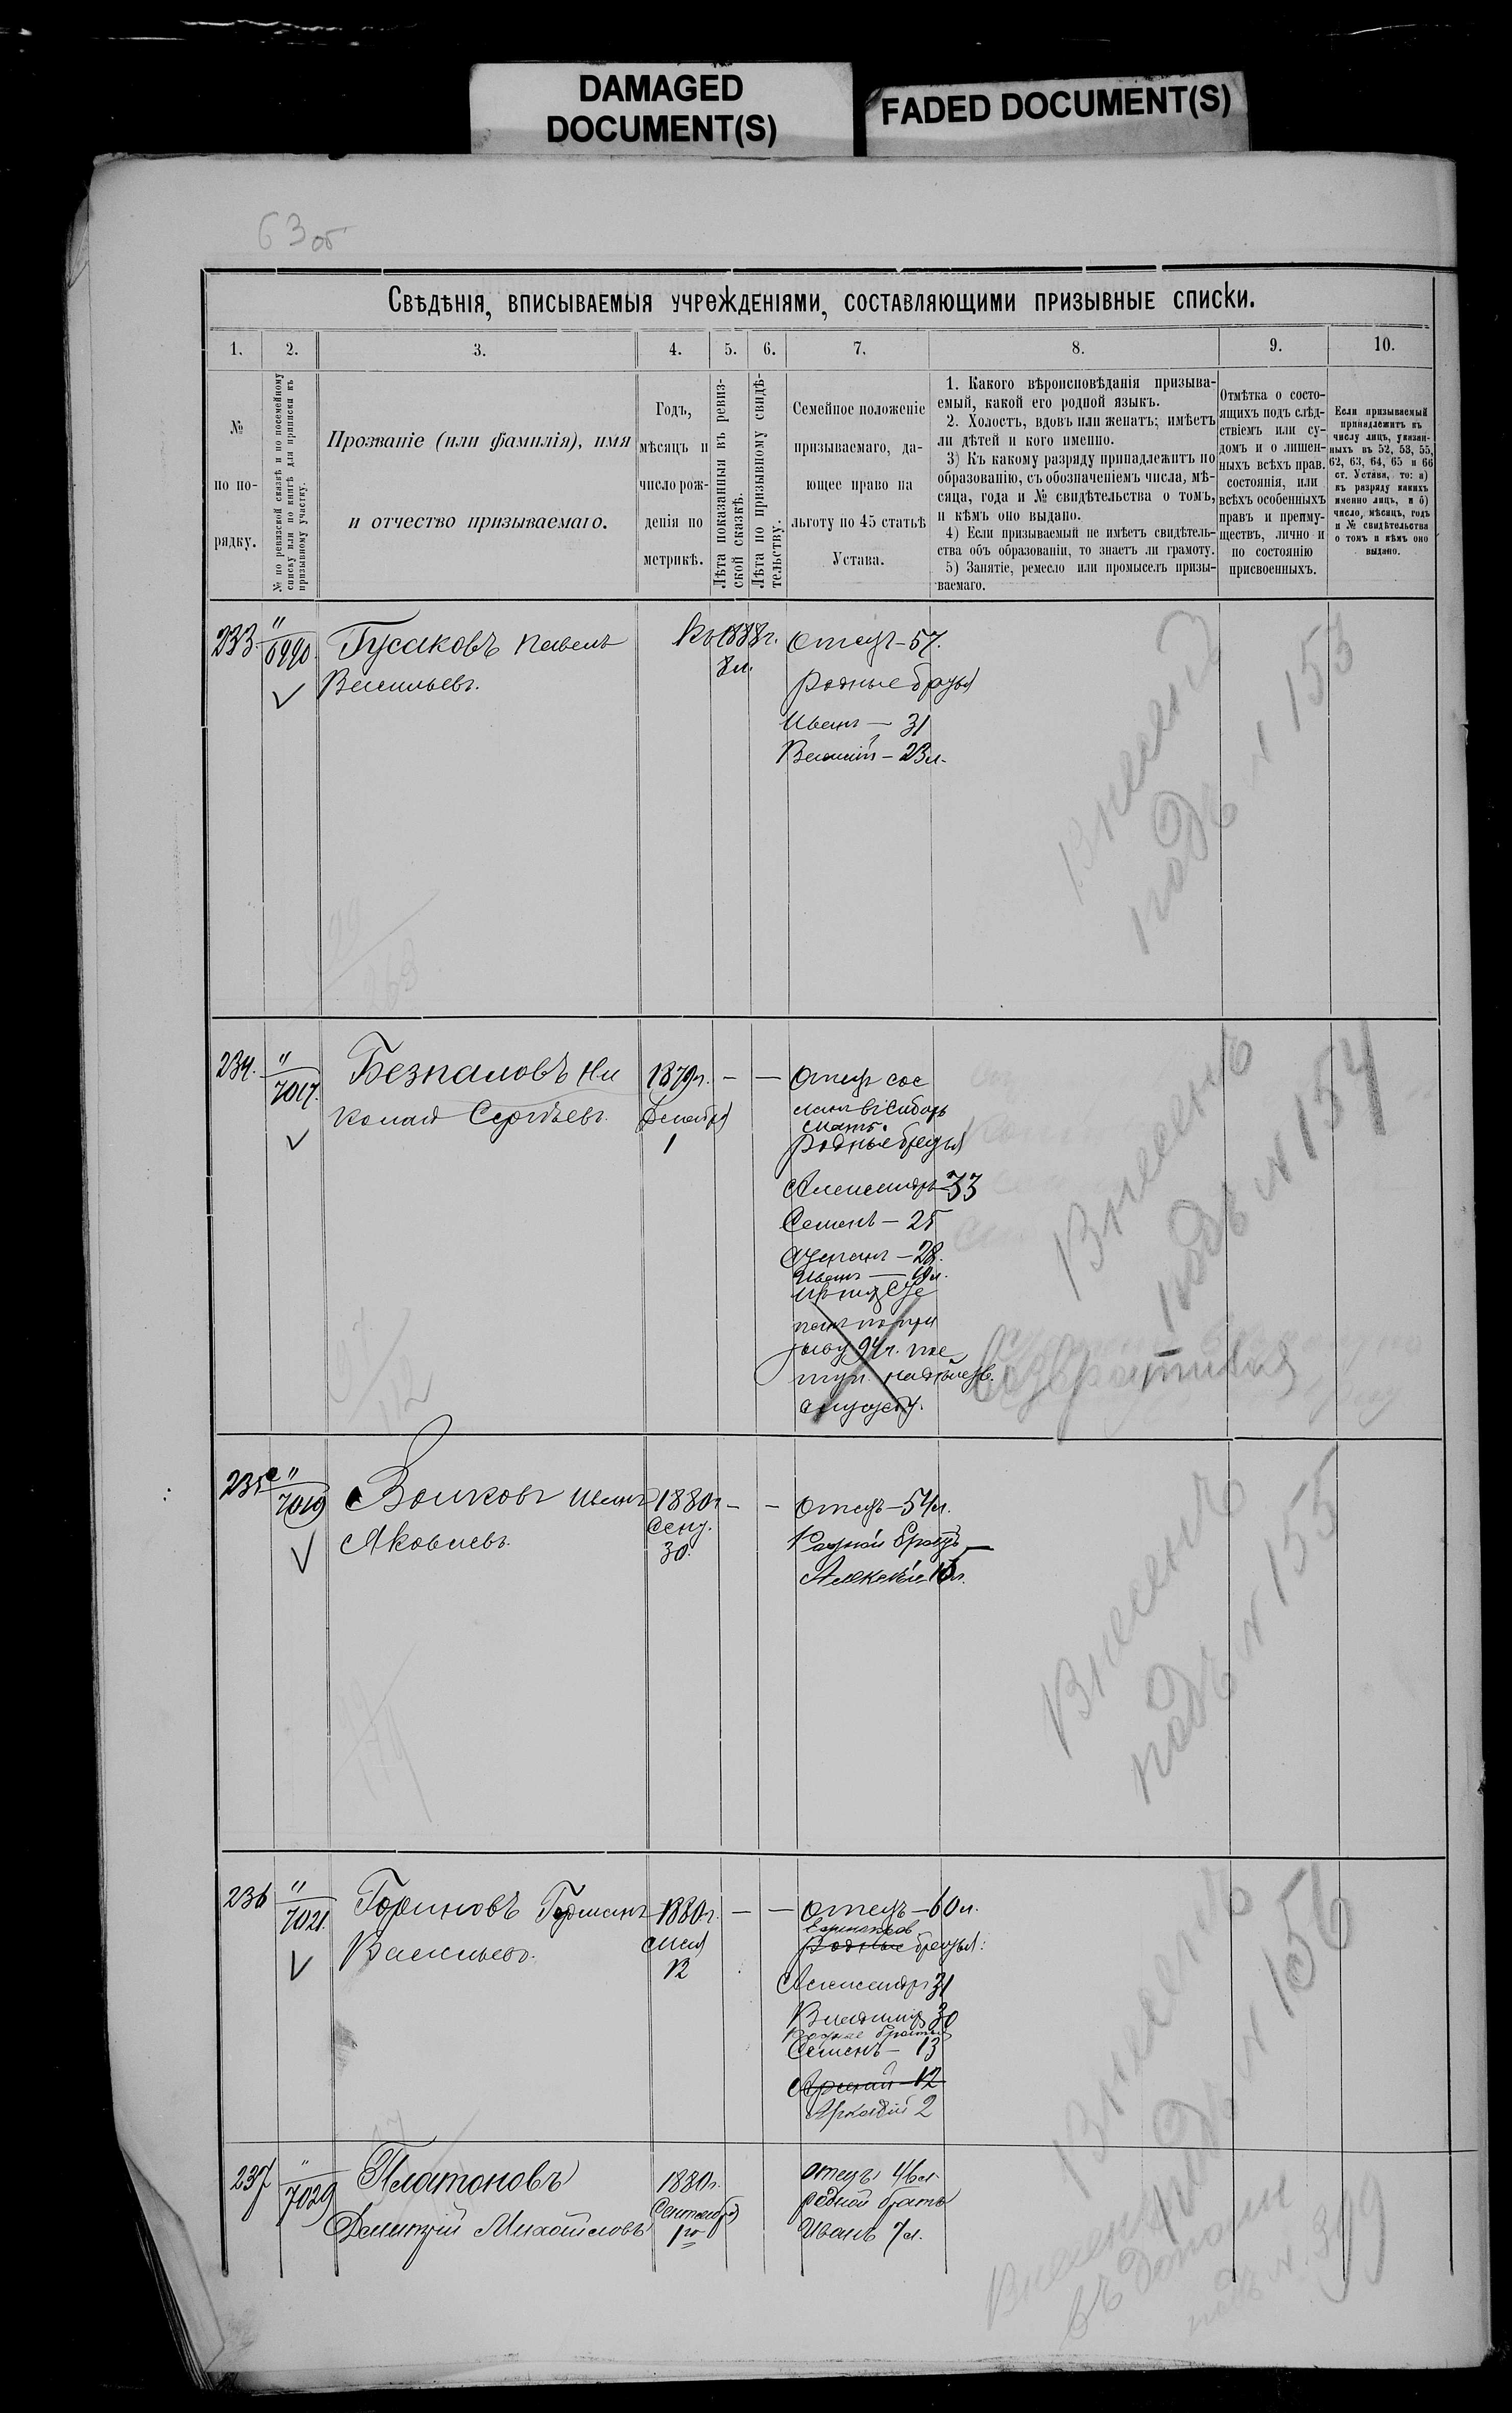 DAMAGED
DOCUMENT(S)
FADED DOCUMENT(S)
63 об
Свѣдѣнія, вписываемыя учрежденіями, составляющими призывные списки.
1. 2. 3. 4. 5. 6. 7. 8. 9. 10.
№
по по-
рядку.
№ по ревизской сказкѣ и по посемейному
списку или по книгѣ для приписки къ
призывному участку.
Прозваніе (или фамилія), имя
и отчество призываемаго.
Годъ,
мѣсяцъ и
число рож-
денія по
метрикѣ.
Лѣта показанныя въ ревиз-
ской сказкѣ.
Лѣта по призывному свидѣ-
тельству.
Семейное положеніе
призываемаго, да-
ющее право на
льготу по 45 статьѣ
Устава.
1. Какого вѣроисповѣданія призыва-
емый, какой его родной языкъ.
2. Холостъ, вдовъ или женатъ; имѣетъ
ли дѣтей и кого именно.
3) Къ какому разряду принадлежитъ по
образованію, съ обозначеніемъ числа, мѣ-
сяца, года и № свидѣтельства о томъ,
и кѣмъ оно выдано.
4) Если призываемый не имѣетъ свидѣтель-
ства объ образованіи, то знаетъ ли грамоту.
5) Занятіе, ремесло или промыселъ призы-
ваемаго.
Отмѣтка о состо-
ящихъ подъ слѣд-
ствіемъ или су-
домъ и о лишен-
ныхъ всѣхъ прав.
состоянія, или
всѣхъ особенныхъ
правъ и преиму-
ществъ, лично и
по состоянію
присвоенныхъ.
Если призываемый
принадлежитъ къ
числу лицъ, указан-
ныхъ въ 52, 53, 55,
62, 63, 64, 65 и 66
ст. Устава, то: а)
къ разряду какихъ
именно лицъ, и б)
число, мѣсяцъ, годъ
и № свидѣтельства
о томъ и кѣмъ оно
выдано.
233. " 6990. Гусаковъ Павелъ Къ 1888г. Отецъ - 57.
Васильевъ. 8 л. родные братья
Иванъ - 31
Василій - 23 л.
Внесенъ
подъ № 153
234. " 7017. Безпаловъ Ни 1879г. - - Отецъ сос
колай Сергѣевъ. Декабря ланъ въ Сибирь
мать.
1 родные братья
Александръ 33
Семенъ - 25
Степанъ - 28.
Иванъ - 19 л.
Внесенъ
подъ № 154
Возвратился
235 " 7019 Волковъ Иванъ 1880г - - Отецъ - 54 л.
Яковлевъ. Сент. Родной братъ
30. Алексѣй 15 л.
Внесенъ
подъ № 155
236 " 7021. Гориновъ Германъ 1880г. - - Отецъ - 60 л.
Васильевъ. Мая родные братья:
12 Александръ 31
Владиміръ 30
Родные братья
Семенъ - 13
Арсеній - 12
Аркадій 2
Внесенъ
подъ № 156
237 " 7029 Платоновъ 1880г. отецъ 46 л.
Дмитрій Михайловъ Сентября родной братъ
1го Иванъ 7 л.
Внесенъ
въ дополн
подъ №. 319